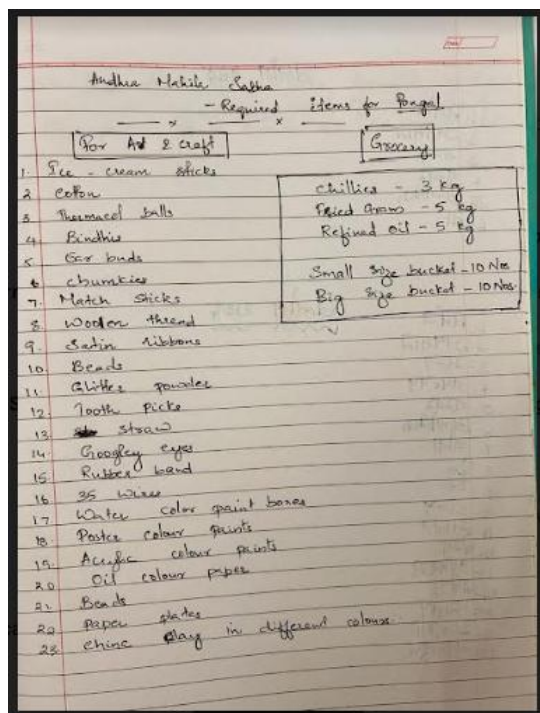 Andhra Mahila Sabha
- Required items for Pongal
For Art & craft
1. Ice - cream sticks
2 Cotton
3 Thermacol balls
4 Bindhis
5 Ear buds
6 chumkies
7. Match sticks
8. Woolen thread
9. Satin ribbons
10 Beads
11 Glitter powder
12 Tooth picks
13 straw
14 Googley eyes
15 Rubber band
16 35 wires
17 Water color paint boxes
18 Poster colour paints
19. Acrylic colour paints
20 Oil colour paper
21 Beads
22 Paper plates
23 Chine clay in different colours.
Grocery
Chillies - 3 kg
Fried Gram - 5 kg
Refined oil - 5 kg
Small size bucket - 10 Nos
Big size bucket - 10 Nos.